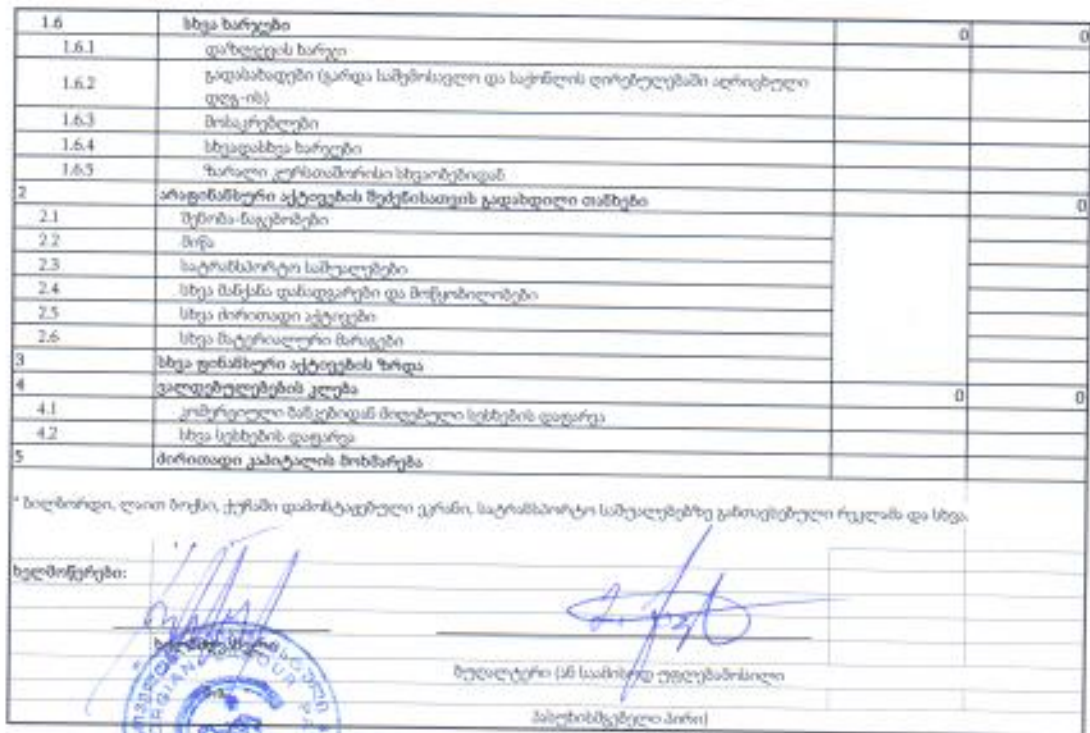 1.6 სხვა ხარჯები 0 0
1.6.1 დაზღვევის ხარჯი
1.6.2 გადასახადები (გარდა საშემოსავლო და საქონლის ღირებულებაში აღრიცხული
დღგ-ის)
1.6.3 მოსაკრებლები
1.6.4 სხვადასხვა ხარჯები
1.6.5 ზარალი კურსთაშორისი სხვაობებიდან
2 არაფინანსური აქტივების შეძენისათვის გადახდილი თანხები 0
2.1 შენობა-ნაგებობები
2.2 მიწა
2.3 სატრანსპორტო საშუალებები
2.4 სხვა მანქანა დანადგარები და მოწყობილობები
2.5 სხვა ძირითადი აქტივები
2.6 სხვა მატერიალური მარაგები
3 სხვა ფინანსური აქტივების ზრდა
4 ვალდებულებების კლება 0 0
4.1 კომერციული ბანკებიდან მიღებული სესხების დაფარვა
4.2 სხვა სესხების დაფარვა
5 ძირითადი კაპიტალის მოხმარება
* ბილბორდი, ლაით ბოქსი, ქუჩაში დამონტაჟებული ეკრანი, სატრანსპორტო საშუალებებზე განთავსებული რეკლამა და სხვა.
ხელმოწერები:
ბუღალტერი (ან საამისოდ უფლებამოსილი
პასუხისმგებელი პირი)